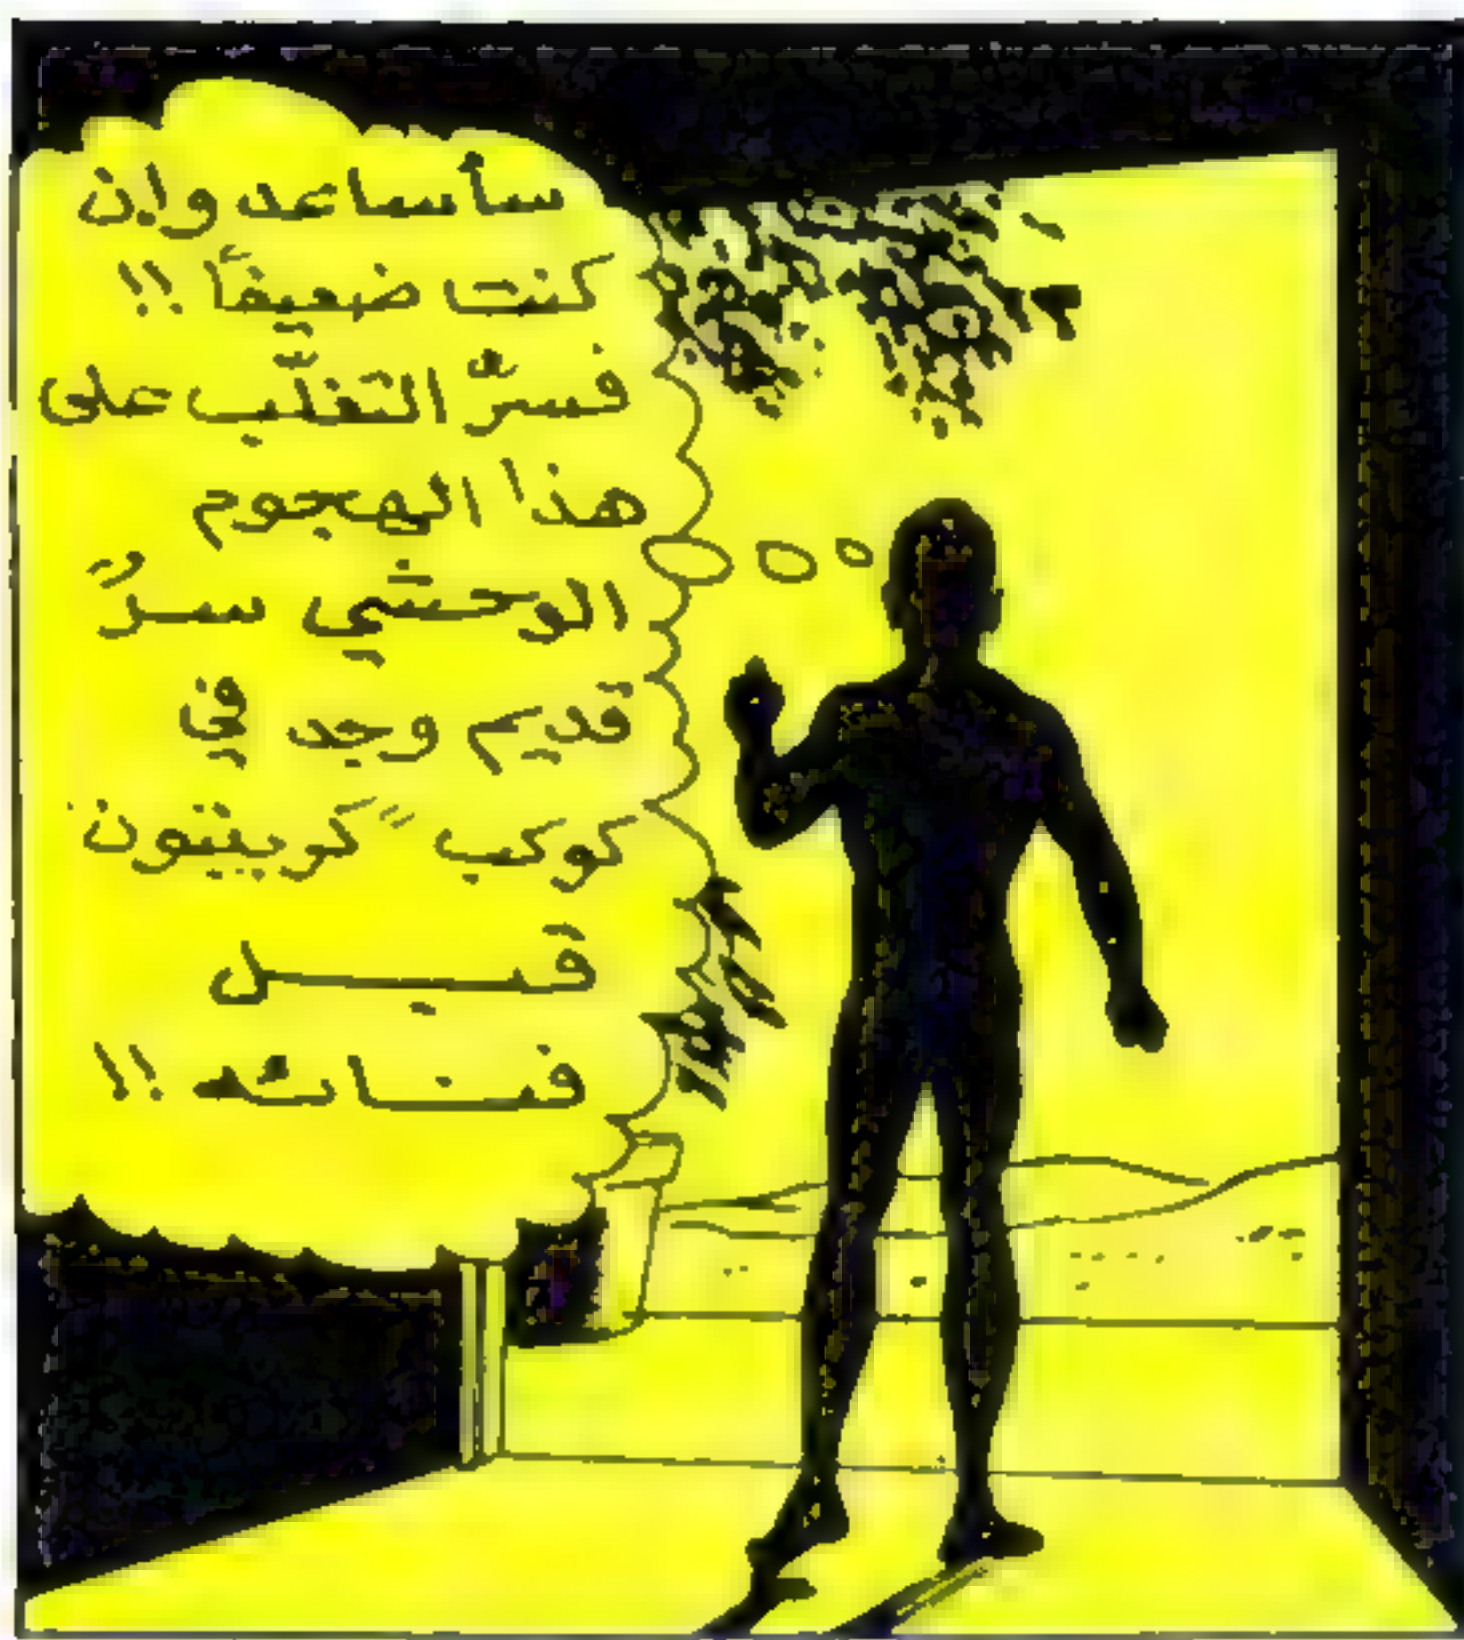 سأساعد وإن
كنت ضعيفاً !!
فسرّ التغلّب على
هذا الهجوم
الوحشي سرٌّ
قديم وجد في
كوكب "كريبتون"
قبل
فنائه !!